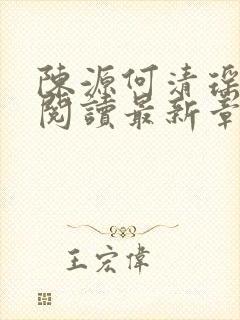 陳源何清瑤
閱讀最新章
王宏偉